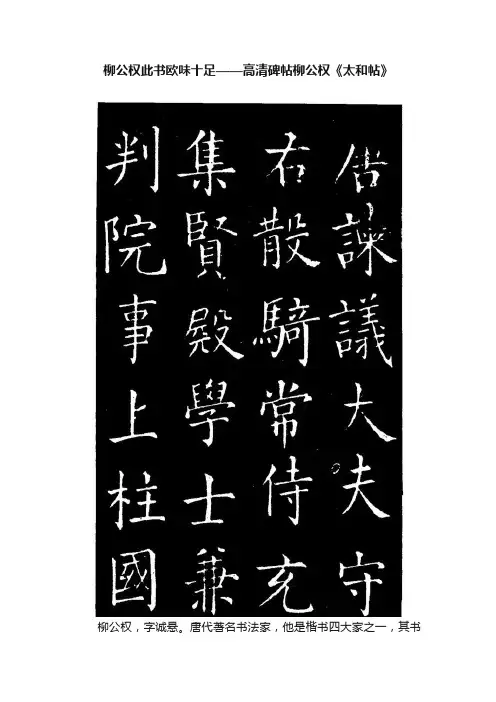 柳公权此书欧味十足——高清碑帖柳公权《太和帖》
諫議大夫守
右散騎常侍充
集賢殿學士兼
判院事上柱國
柳公权，字诚悬。唐代著名书法家，他是楷书四大家之一，其书